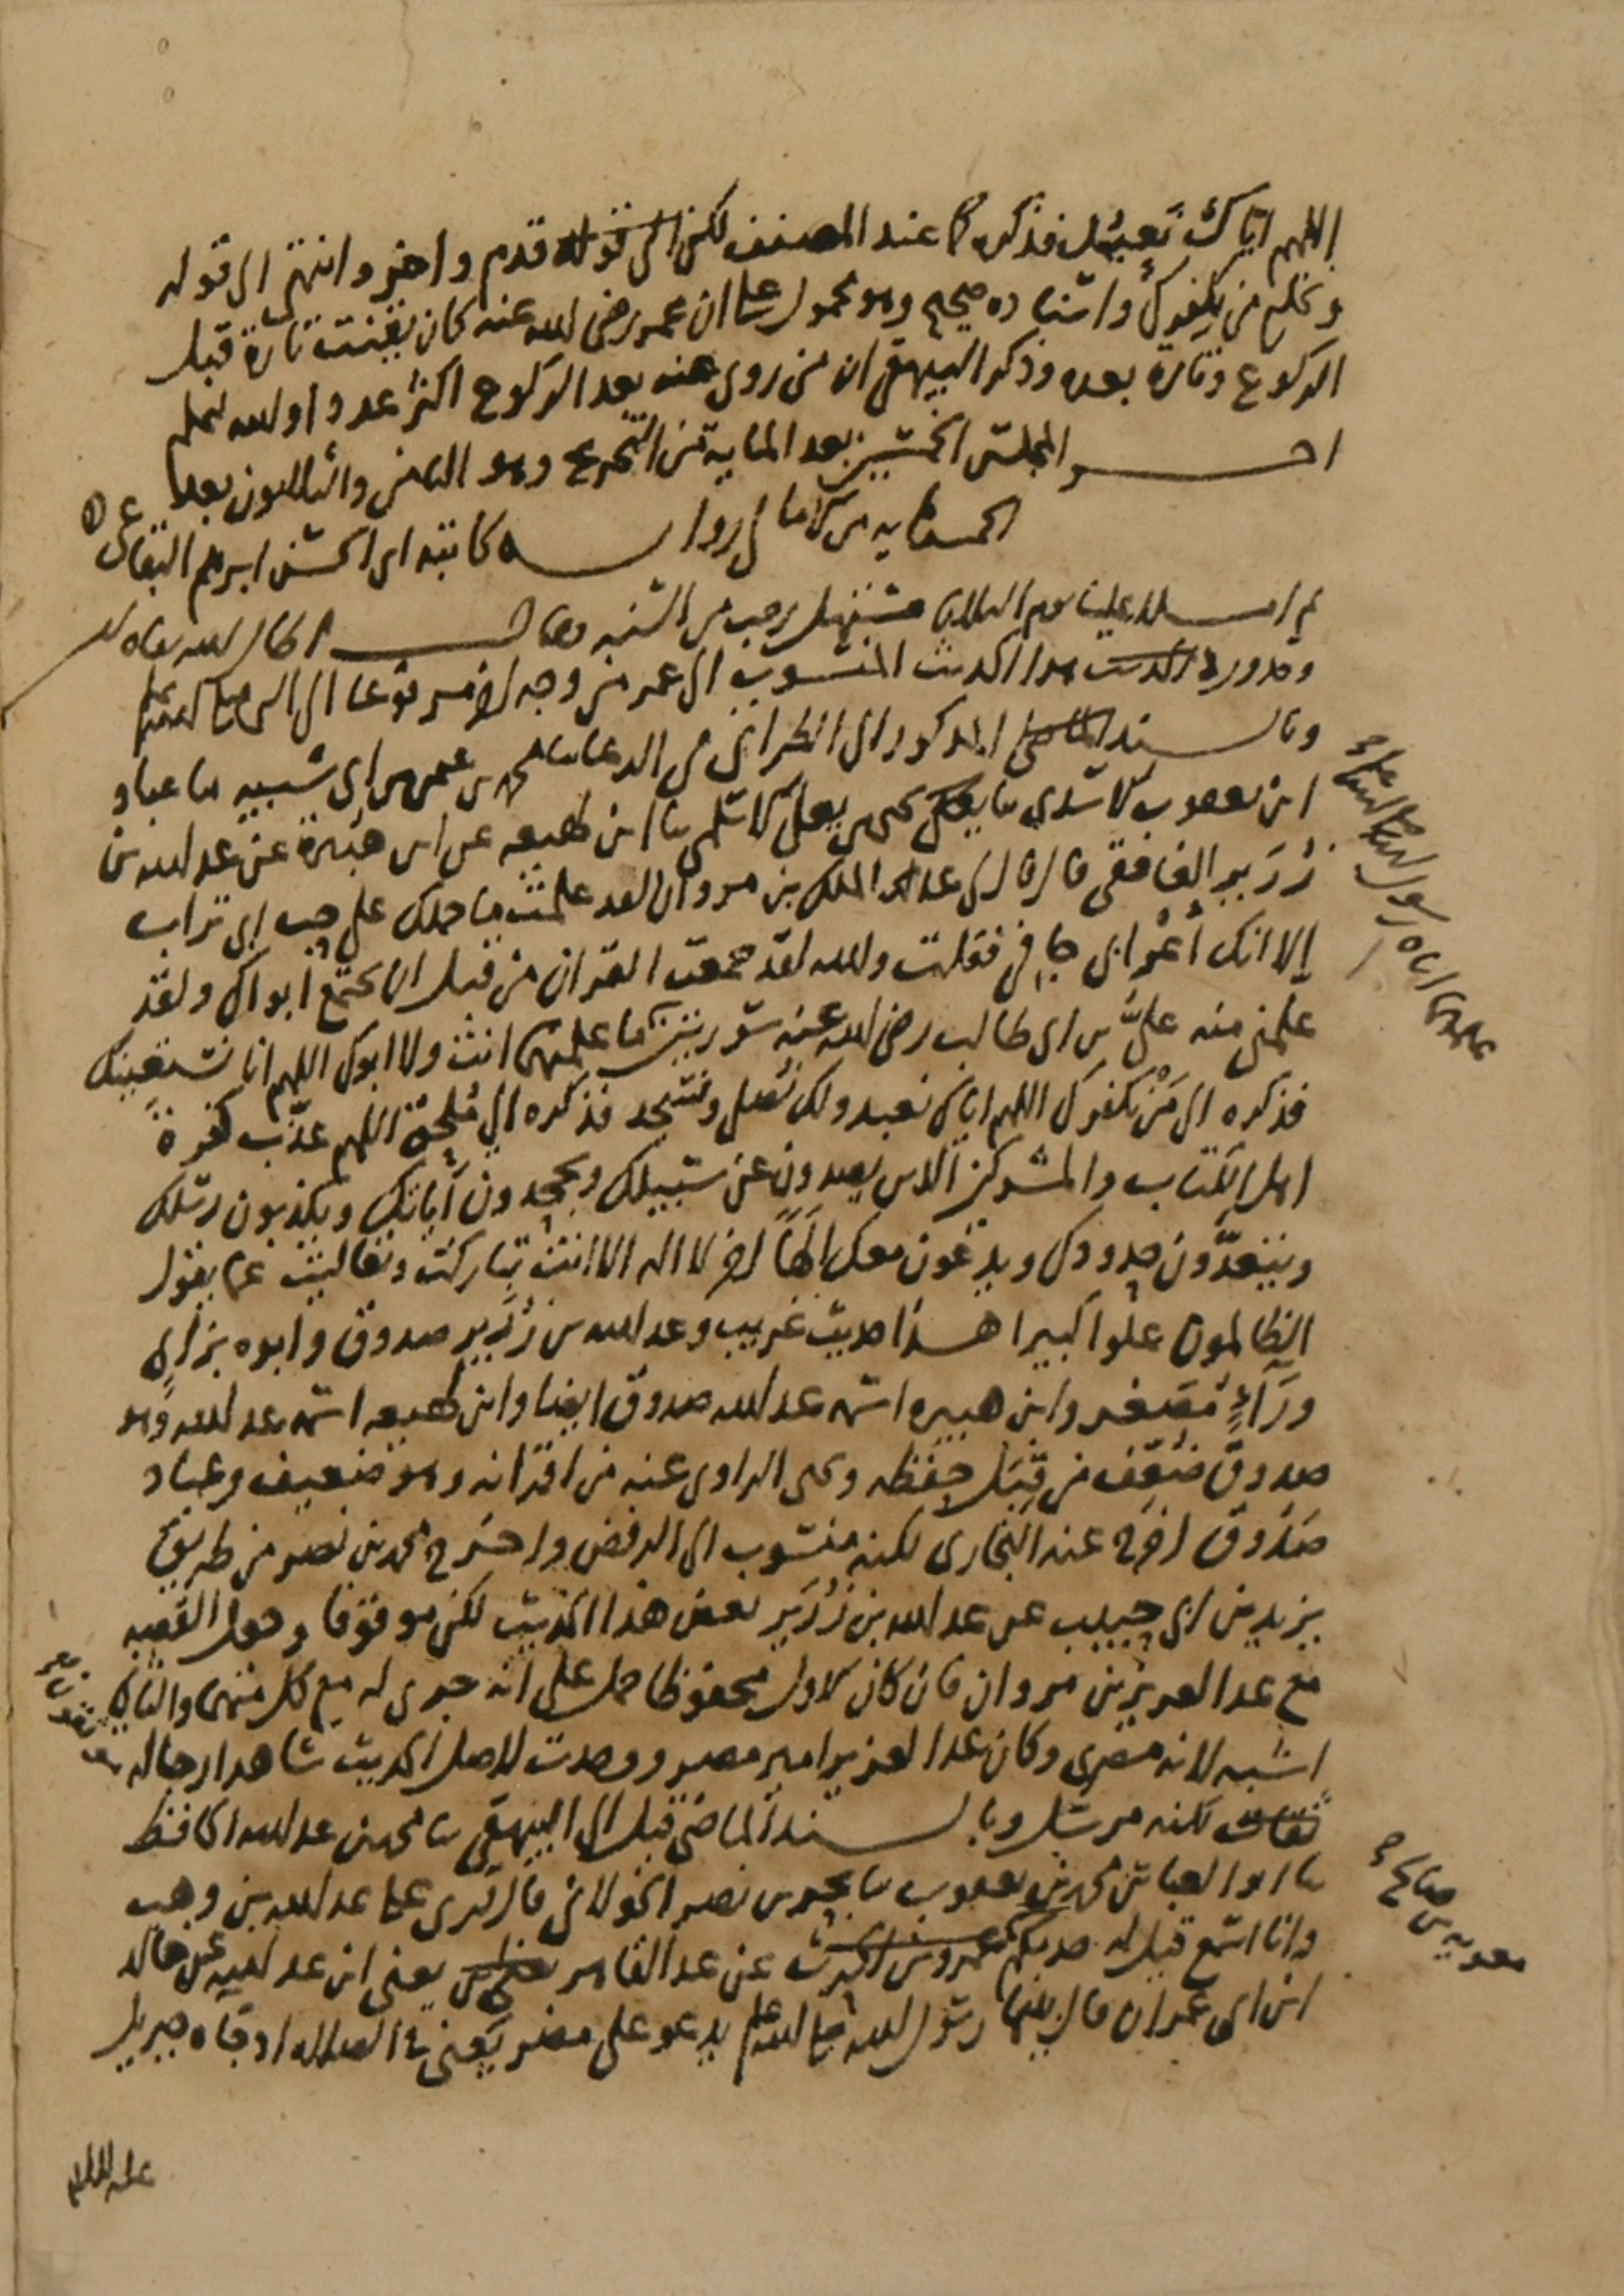 اللهم اياك نعبد فذكره كما عند المصنف لكن قدم واخر وانتهى الى قوله
ونخلع من يكفرك واسناده صحيح وهو محمول على ان عمر رضي الله عنه كان يقنت تارة قبل
الركوع وتارة بعده وذكر البيهقي ان من روى عنه بعد الركوع اكثر عددا والله اعلم
اخر المجلس الخمسين بعد المايه من التخريج وهو الثامن والثلاثون بعد
الخمسمايه من الامالي رواية كاتبه ابي الحسن ابرهيم البقاعي
ثم املا علينا يوم الثلاثا مستهل رجب من السنه فقال
وقد ورد هذا الحديث المنسوب الى عمر من وجه اخر مرفوعا الى النبي صلى الله عليه وسلم
وبالسند المذكور الى الطبراني في الدعا ثنا محمد بن عثمن بن ابي شيبه ثنا عباد
ابن يعقوب الاسدي ثنا يحيى بن يعلى الاسلمي ثنا ابن لهيعه عن ابن هبيرة عن عبد الله بن
زُرَير الغافقي قال قال لي عبد الملك بن مروان لقد علمت ما حملك على حب ابي تراب
الا انك اعرابي جافي فقلت والله لقد جمعت القران من قبل ان يجتمع ابواك ولقد
علمني منه عليّ بن ابي طالب رضي الله عنه سورتين ما علمتهما انت ولا ابوك اللهم انا نستعينك
فذكره الى مَنْ يكفرك اللهم اياك نعبد ولك نصلي ونسجد فذكره الى مُلحِق اللهم عذّب كفرة
اهل الكتاب والمشركين الذين يصدون عن سبيلك ويجحدون آياتك ويكذبون رسلك
ويتعدَّون حدودك ويدعون معك الهًا اخر لا اله الا انت تباركت وتعاليت عما يقول
الظالمون علوا كبيرا هذا حديث غريب وعبد الله بن زُرَير صدوق وابوه بزاي
وراءٍ مصغر وابن هبيره اسمه عبد الله صدوق ايضا وابن لهيعه اسمه عبد الله وهو
صدوق ضُعِّف من قِبَل حفظه ويحيى الراوي عنه من اقرانه وهو ضعيف وعباد
صدوق اخرج عنه البخاري لكنه منسوب الى الرفض واخرج محمد بن نصر من طريق
يزيد بن ابي حبيب عن عبد الله بن زُرَير بعض هذا الحديث لكن موقوفا وجعل القصه
مع عبد العزيز بن مروان فان كان الاول محفوظا حمل على انه جرى له مع كل منهما والثاني
اشبه لانه مصري وكان عبد العزيز امير مصر ووجدت لاصل الحديث شاهدا رجاله
ثقات لكنه مرسل وبالسند الماضي قبل الى البيهقي ثنا محمد بن عبد الله الحافظ
ثنا ابو العباس محمد بن يعقوب ثنا بحر بن نصر الخولاني قال قرئ على عبد الله بن وهب
وانا اسمع قيل له حدثكم عن عبد القاهر يعني ابن عبد الله عن خالد
ابن ابي عمران قال بينما رسول الله صلى الله عليه وسلم يدعو على مضر يعني في الصلاه اذ جاه جبريل
معويه بن صالح صح
عليه السلام